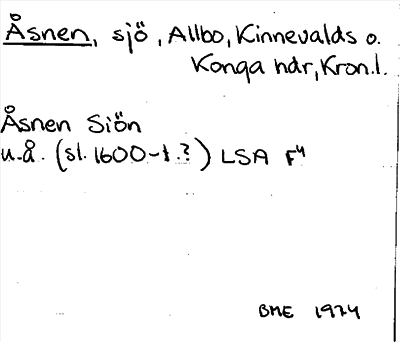 Åsnen, sjö, Allbo, Kinnevalds o.
Konga hdr, Kron.l.
Åsnen Siön
u.å. (sl. 1600-t.?) LSA F4
BME 1974